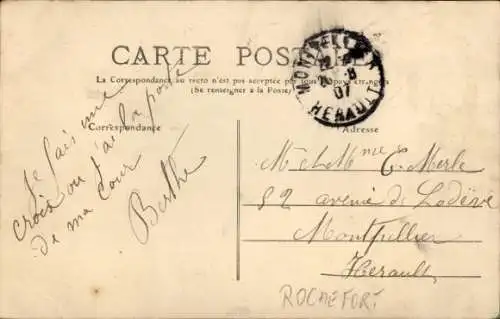 CARTE POSTALE
La Correspondance au recto n'est pas acceptée par tous les pays étrangers
(Se renseigner à la Poste)
MONTPELLIER
HERAULT
07
Correspondance
Adresse
Je fais une
croix ou j'ai la porte
de ma cour
Berthe
M et Mme E. Merle
52 avenue de Lodève
Montpellier
Herault
ROCHEFORT